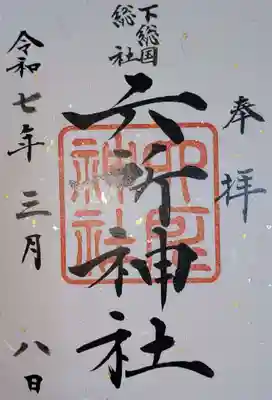 奉拝
下総国
総社
六所神社
六所神社
令和七年三月八日